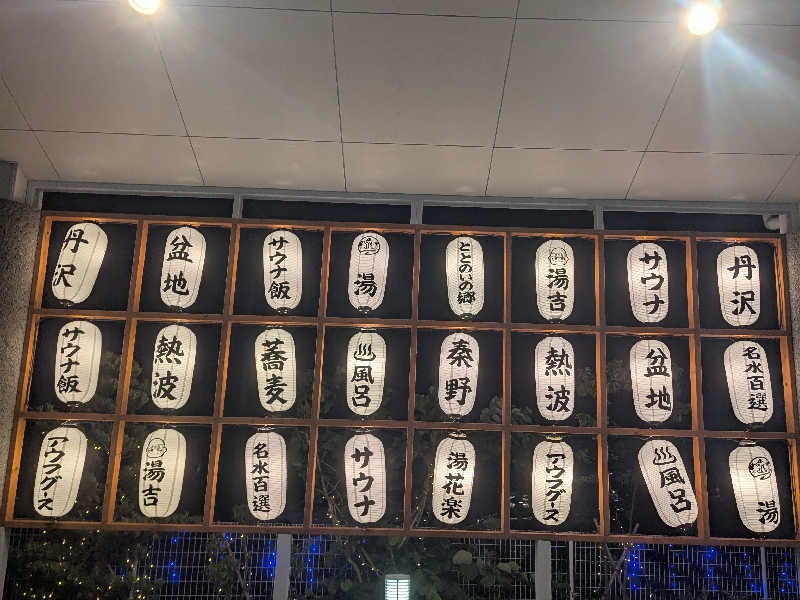 丹沢
盆地
サウナ飯
湯
ととのいの郷
湯吉
サウナ
丹沢
サウナ飯
熱波
蕎麦
風呂
秦野
熱波
盆地
名水百選
アウフグース
湯吉
名水百選
サウナ
湯花楽
アウフグース
風呂
湯